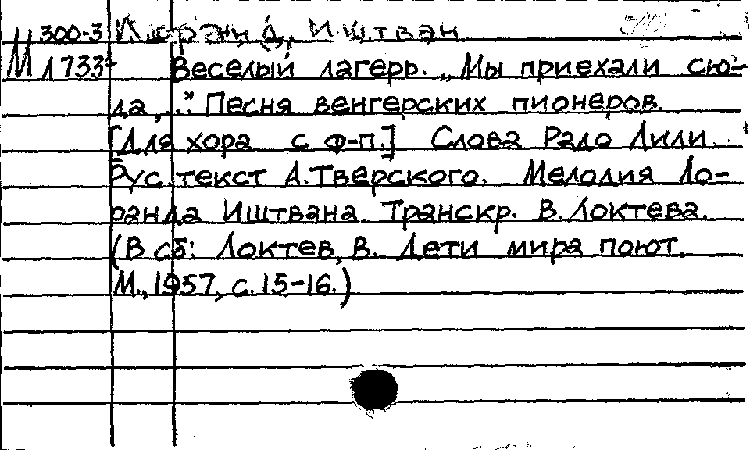 М 300-3 Лоранд, Иштван
1733 Веселый лагерь. „Мы приехали сю-
да,..." Песня венгерских пионеров.
[Для хора с ф-п.] Слова Радо Лили.
Рус. текст А.Тверского. Мелодия Ло-
ранда Иштвана. Транскр. В. Локтева.
(В сб: Локтев, В. Дети мира поют.
М., 1957, с. 15-16.)